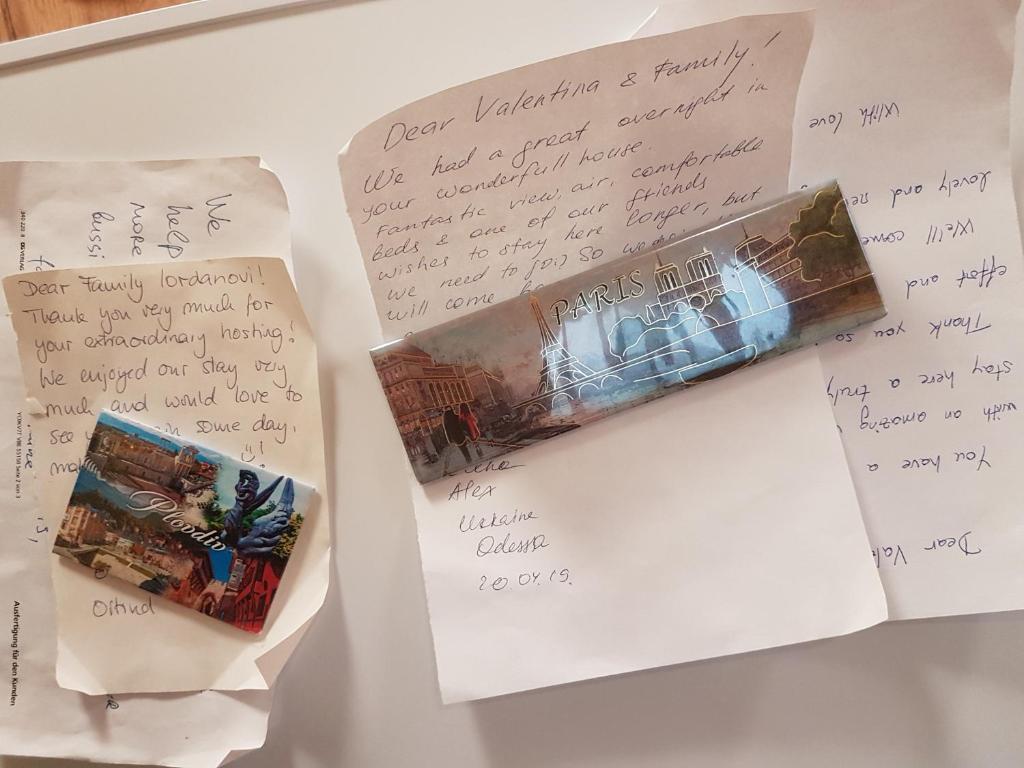 We
help
more
bussi
340 220 8 DG VERLAG
Ausfertigung für den Kunden
Dear Family Iordanovi!
Thank you very much for
your extraordinary hosting!
We enjoyed our stay very
much and would love to
see
some day,
Plovdiv
Ostind
Dear Valentina & Family!
We had a great overnight in
your wonderfull house.
Fantastic view, air, comfortable
beds & one of our friends
wishes to stay here longer, but
we need to go:) So
will come
PARIS
Alex
Ukraine
Odessa
20.04.19.
Dear Val
You have a
with an amazing
stay here a truly
Thank you so
effort and
We'll come
lovely and
With love